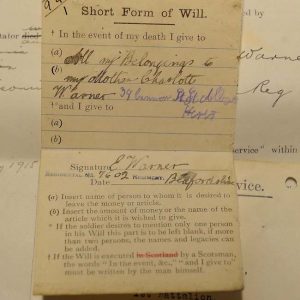 Short Form of Will.
† In the event of my death I give to
(a) All my Belongings to
(b) my Mother Charlotte
Warner 39 Cannon St St Albans
Herts
*and I give to
(a)
(b)
Signature E. Warner
Regimental No. 7602 Regiment. Bedfordshire
Date
(a) Insert name of person to whom it is desired to
leave the money or article.
(b) Insert the amount of money or the name of the
article which it is wished to give.
* If the soldier desires to mention only one person
in his Will this part is to be left blank, if more
than two persons, the names and legacies can be
added.
† If the Will is executed in Scotland by a Scotsman,
the words "In the event, &c.," "and I give to"
must be written by the man himself.
died
Warner
Reg
1915
service" within
vice.
Battalion.